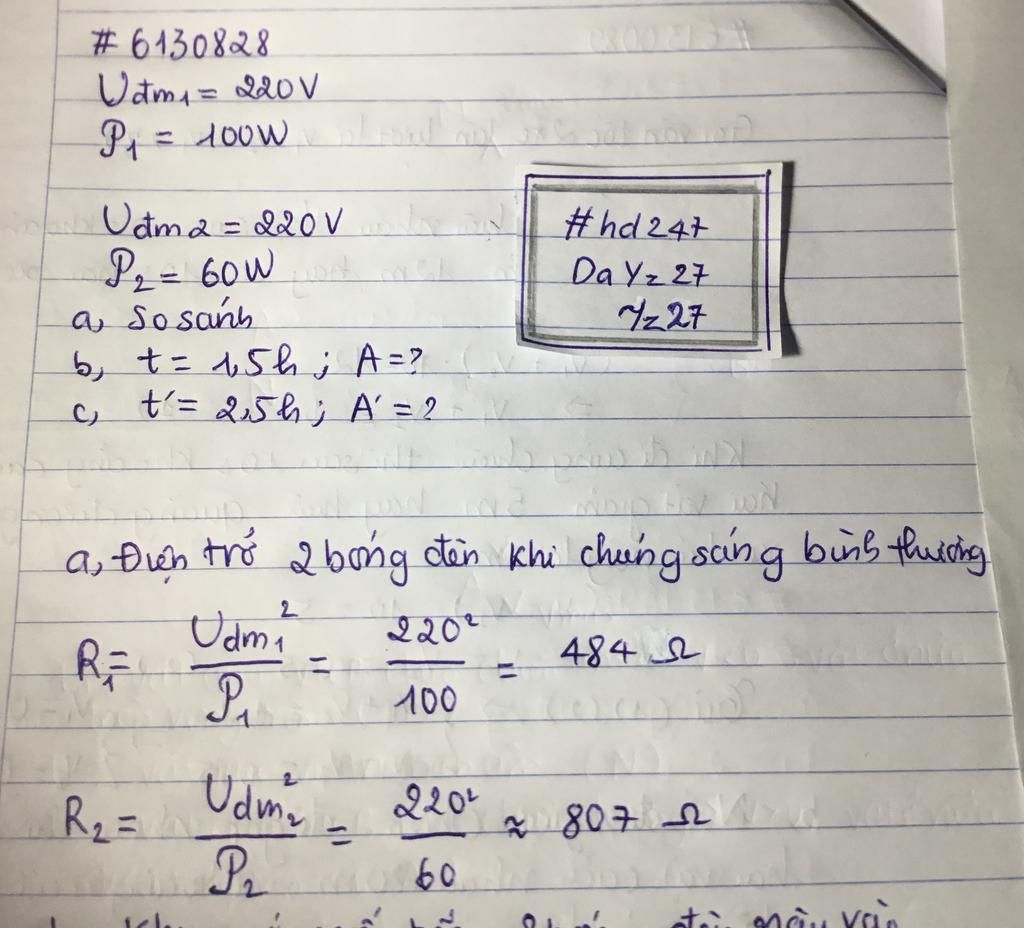 # 6130828
Uđm1 = 220V
P1 = 100W
Uđm2 = 220V
P2 = 60W
a, So sánh
b, t = 1,5h ; A = ?
c, t' = 2,5h ; A' = ?
#hd247
DaYz27
Yz27
a, Điện trở 2 bóng đèn khi chúng sáng bình thường
R1 = Udm1² / P1 = 220² / 100 = 484 Ω
R2 = Udm2² / P2 = 220² / 60 ≈ 807 Ω